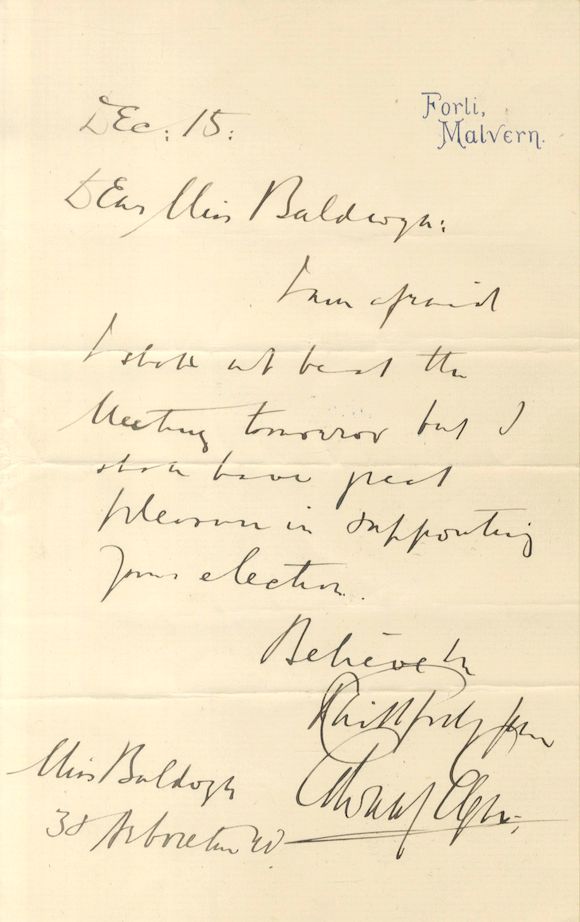 Forli,
Malvern.
Dec: 15:
Dear Miss Baldwyn:
I am afraid
I shall not be at the
Meeting tomorrow but I
shall have great
pleasure in supporting
your election.
Believe me
Faithfully yours
Edward Elgar
Miss Baldwyn
Arboretum Rd